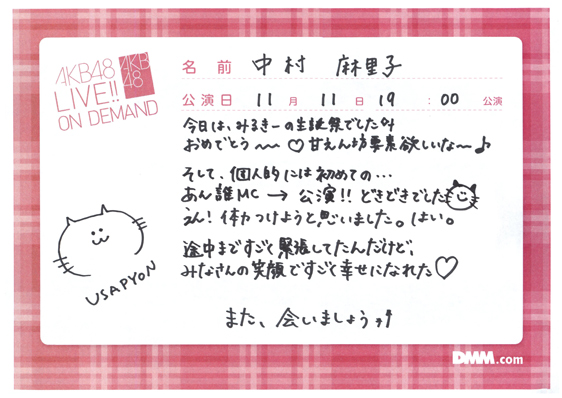 AKB48
LIVE!!
ON DEMAND
AKB
48
名前 中村 麻里子
公演日 11月11日19:00公演
今日は、みるきーの生誕祭でした
おめでとう〜〜♡甘えん坊要素欲しいな〜♪
そして、個人的には初めての…
あん誰MC → 公演!! どきどきでした
えん! 体力つけようと思いました。はい。
途中まですごく緊張してたんだけど、
みなさんの笑顔ですごく幸せになれた♡
また、会いましょう
USAPYON
DMM.com